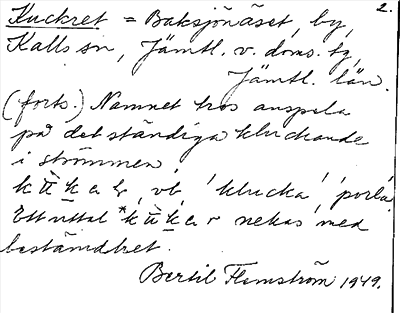 2.
Kuckret = Baksjönäset, by,
Kalls sn, Jämtl. v. doms. tg,
Jämtl. län.
(forts.) Namnet tros anspela
på det ständiga kluckande
i strömmen
vb. 'klucka', 'porla'.
Ett uttal nekas med
bestämdhet.
Bertil Flemström 1949.